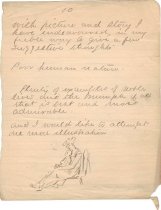 10
With picture and story I
have endeavored, in my
feeble way to give a few
suggestive thoughts.
Poor human nature.
Plenty of examples of noble
lives and the triumph of all
that is best and most
admirable
and I would like to attempt
one more illustration